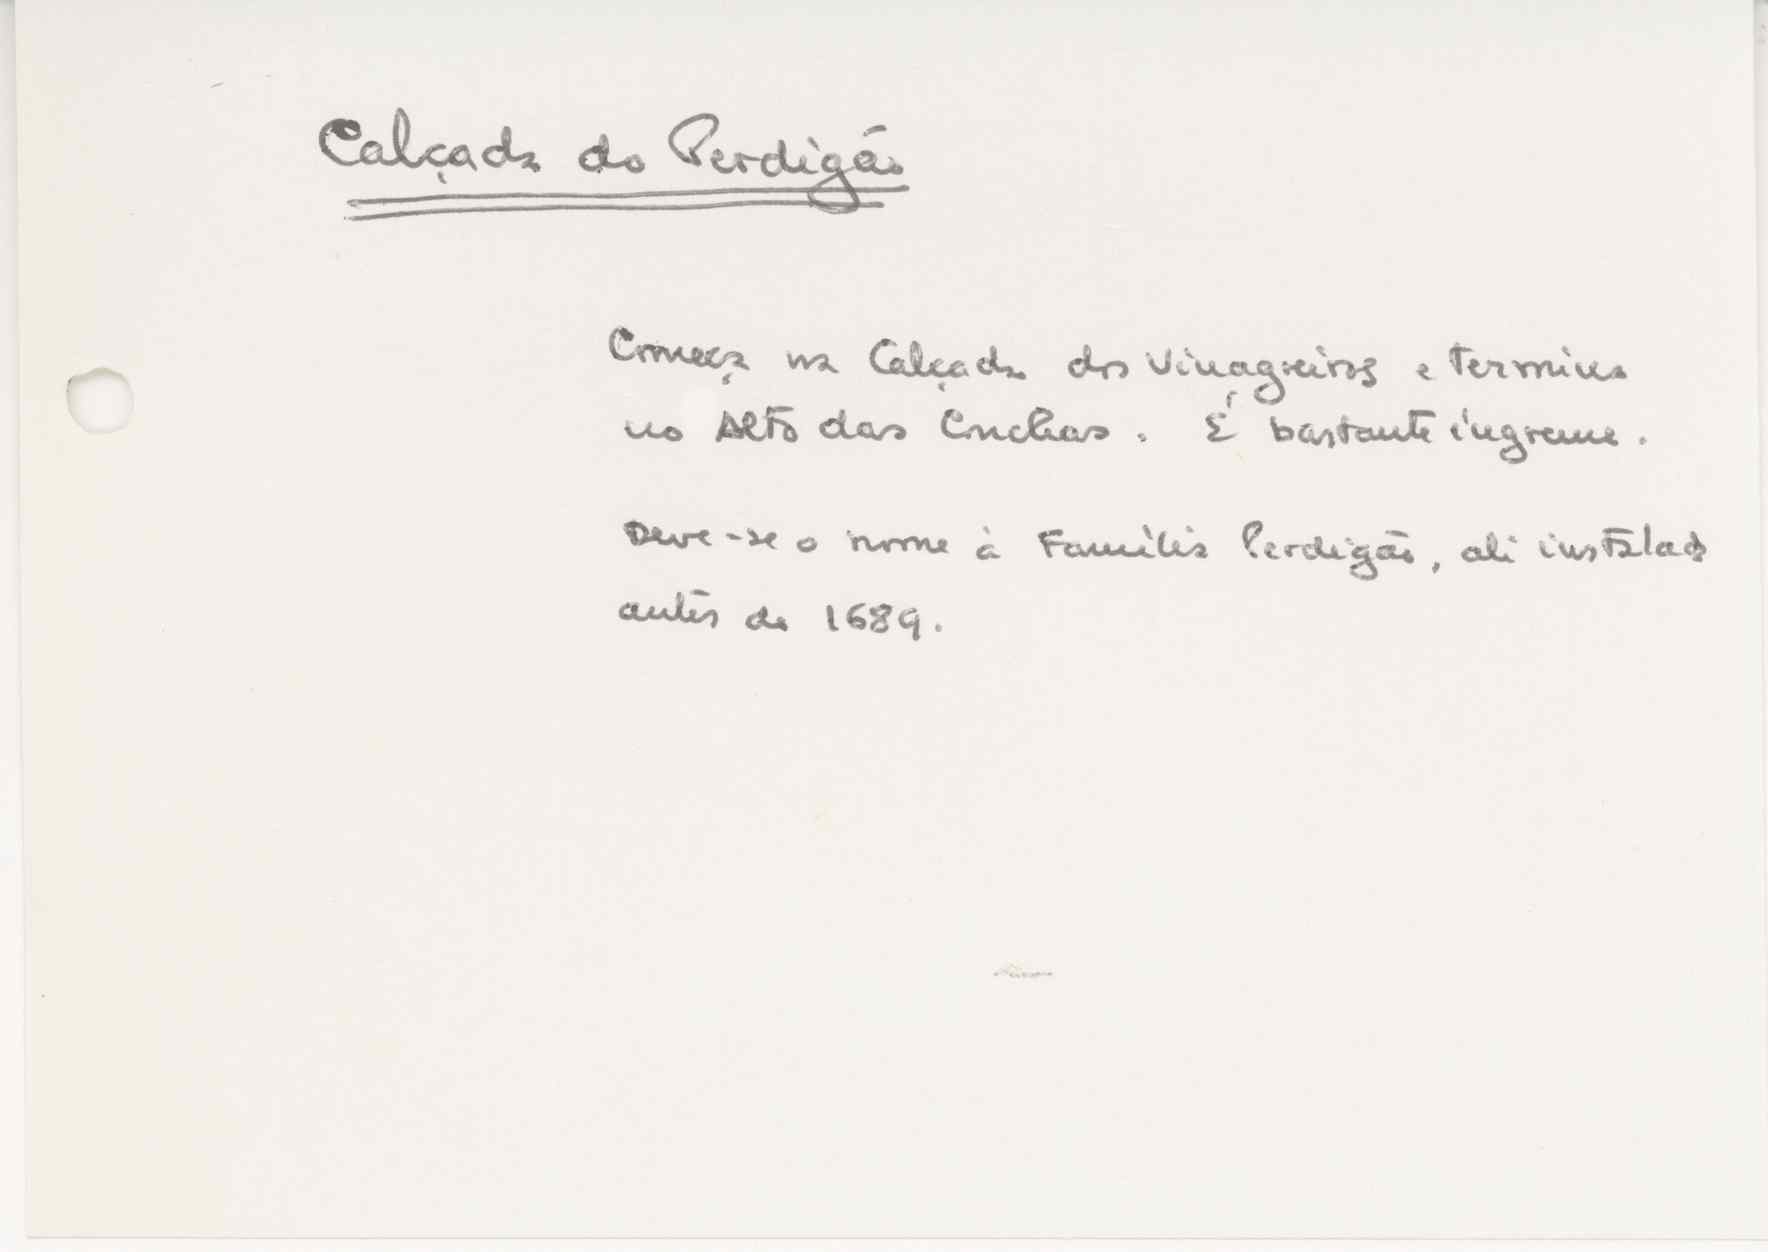 Calçada do Perdigão
Começa na Calçada dos Vinagreiros e termina
no Alto das Conchas. É bastante íngreme.
Deve-se o nome à Família Perdigão, ali instalada
antes de 1689.